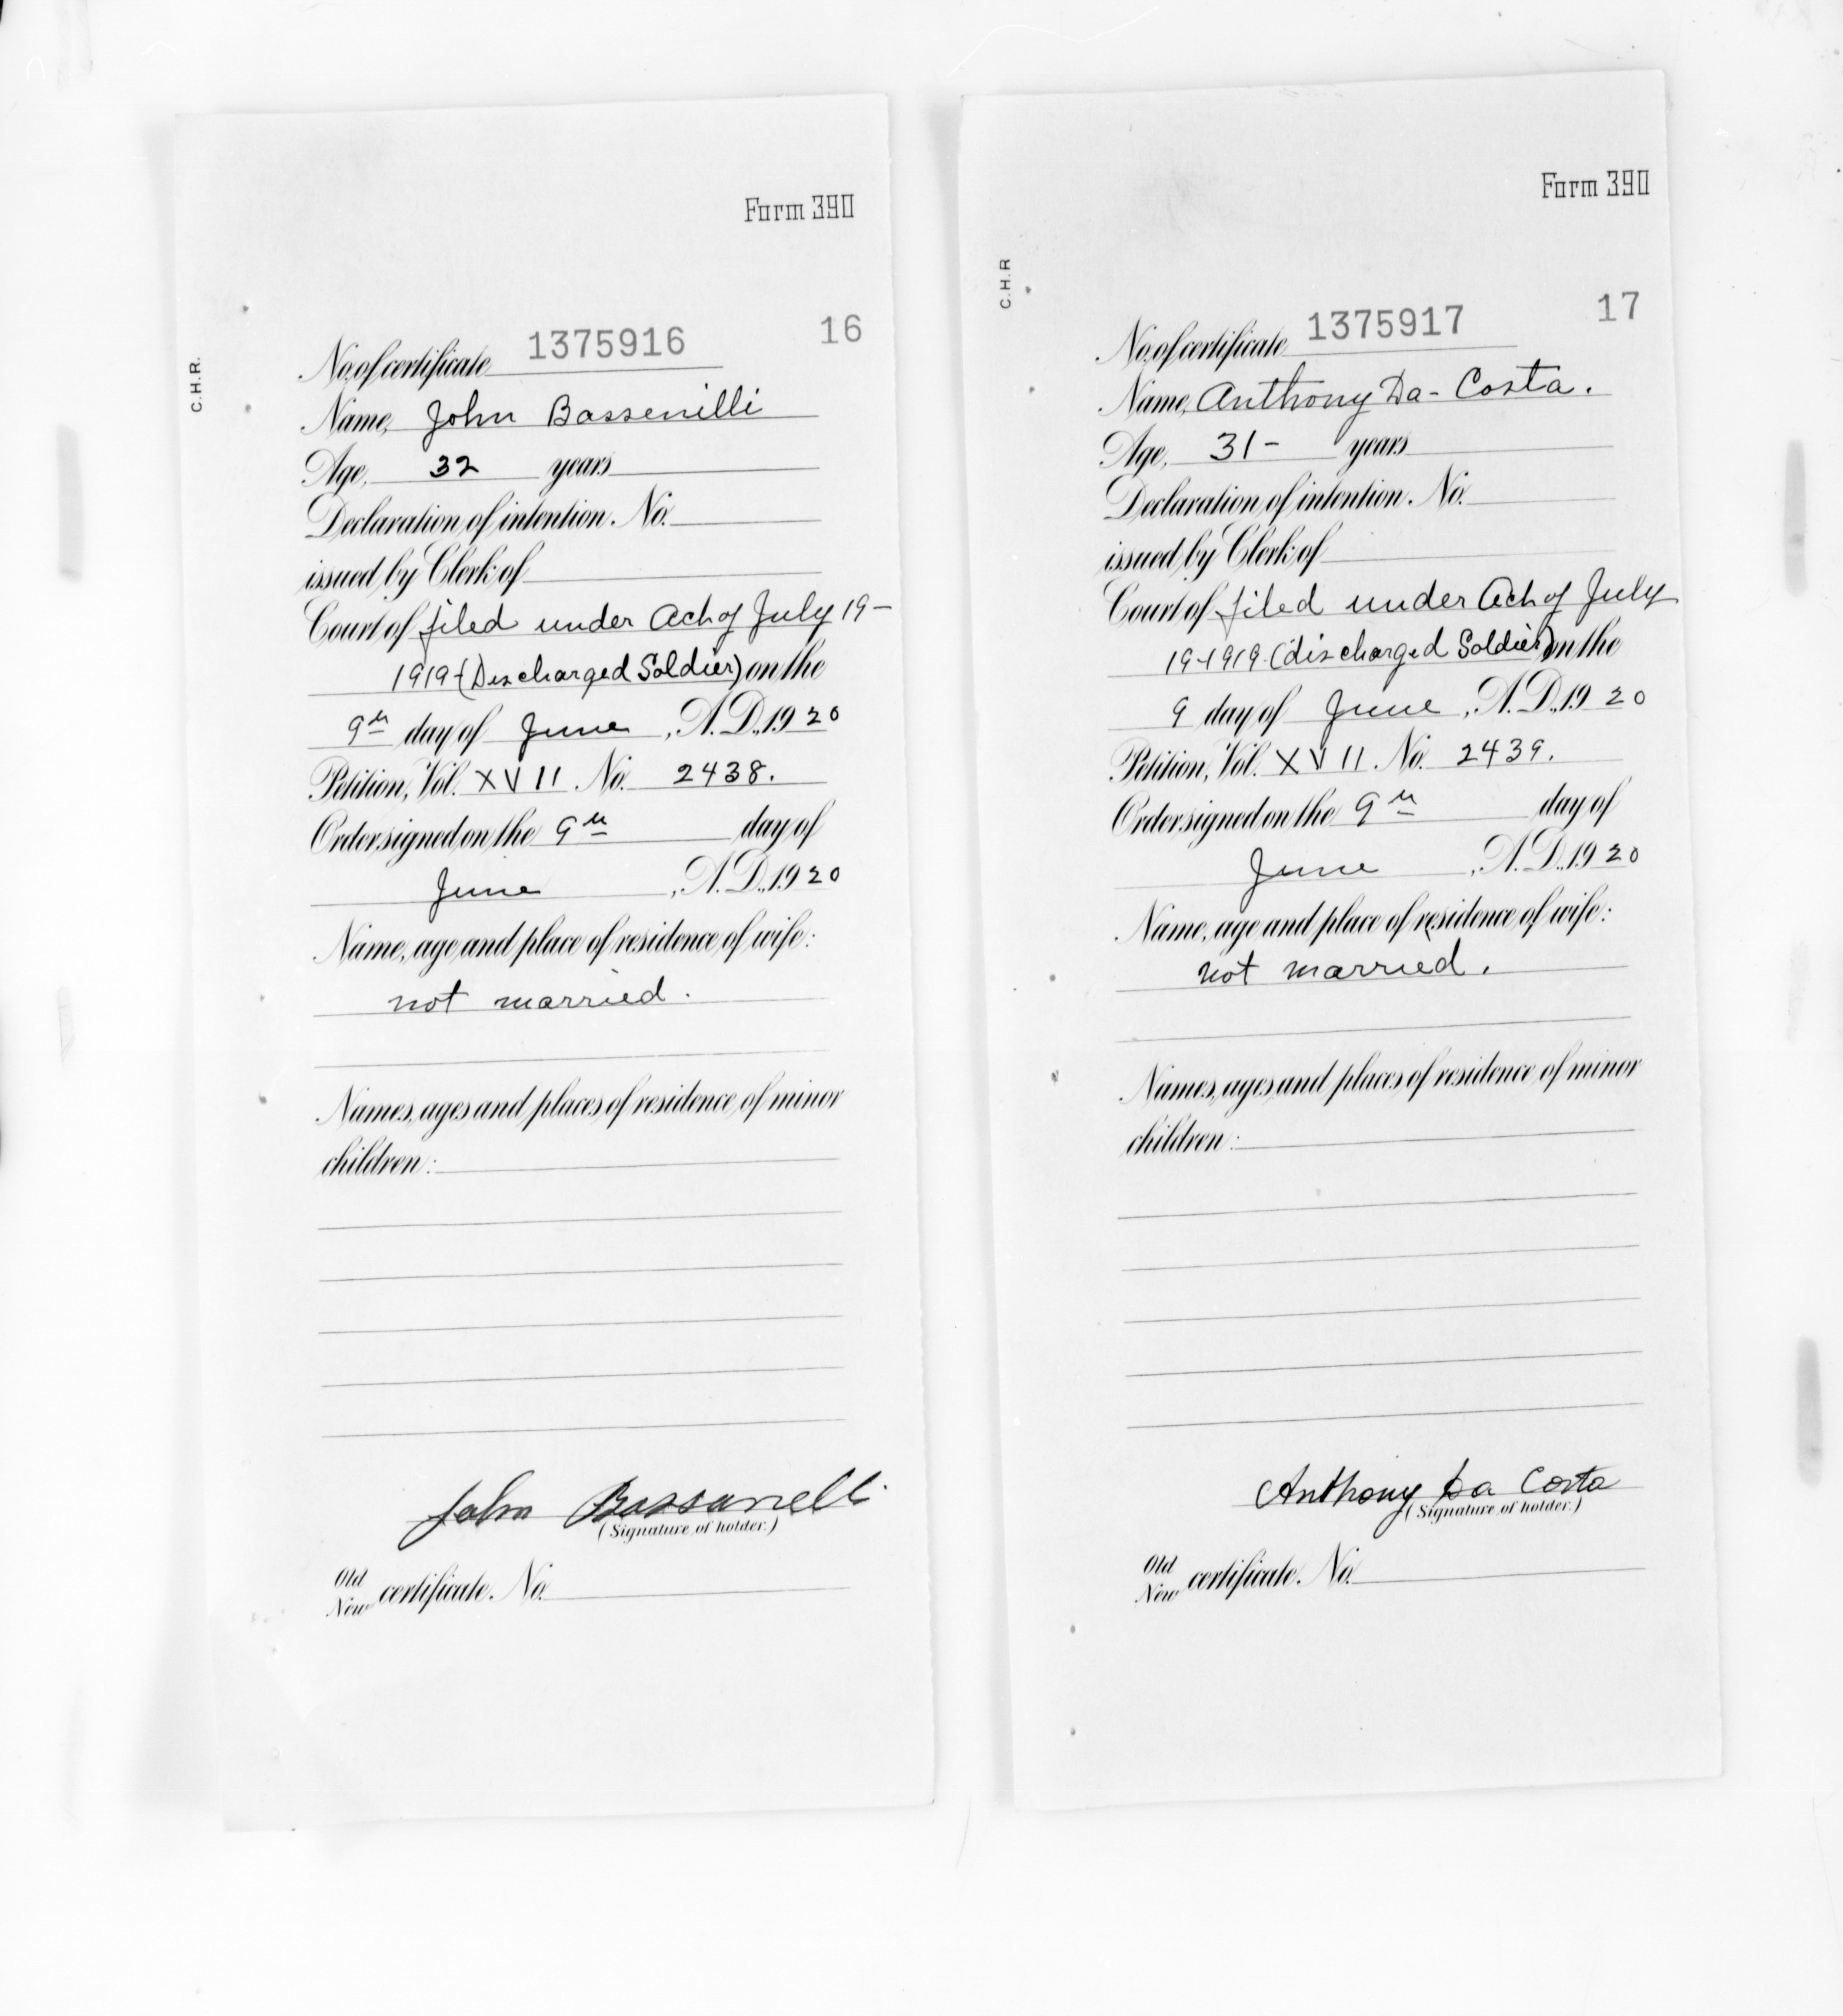 Form 390
C.H.R.
16
No. of certificate 1375916
Name, John Bassenilli
Age, 32 years
Declaration of intention. No.
issued by Clerk of
Court of filed under Act of July 19-
1919-(Discharged Soldier) on the
9th day of June, A.D., 1920
Petition, Vol. XVII. No. 2438.
Order signed on the 9th day of
June, A.D., 1920
Name, age and place of residence of wife:
not married.
Names, ages and places of residence of minor
children:
John Bassanelli
(Signature of holder.)
Old
New certificate. No.
Form 390
C.H.R
17
No. of certificate 1375917
Name, Anthony Da-Costa.
Age, 31- years
Declaration of intention. No.
issued by Clerk of
Court of filed under Act of July
19-1919. (discharged Soldier) on the
9 day of June, A.D., 1920
Petition, Vol. XVII. No. 2439.
Order signed on the 9th day of
June, A.D., 1920
Name, age and place of residence of wife:
not married.
Names, ages and places of residence of minor
children:
Anthony Da Costa
(Signature of holder.)
Old
New certificate. No.